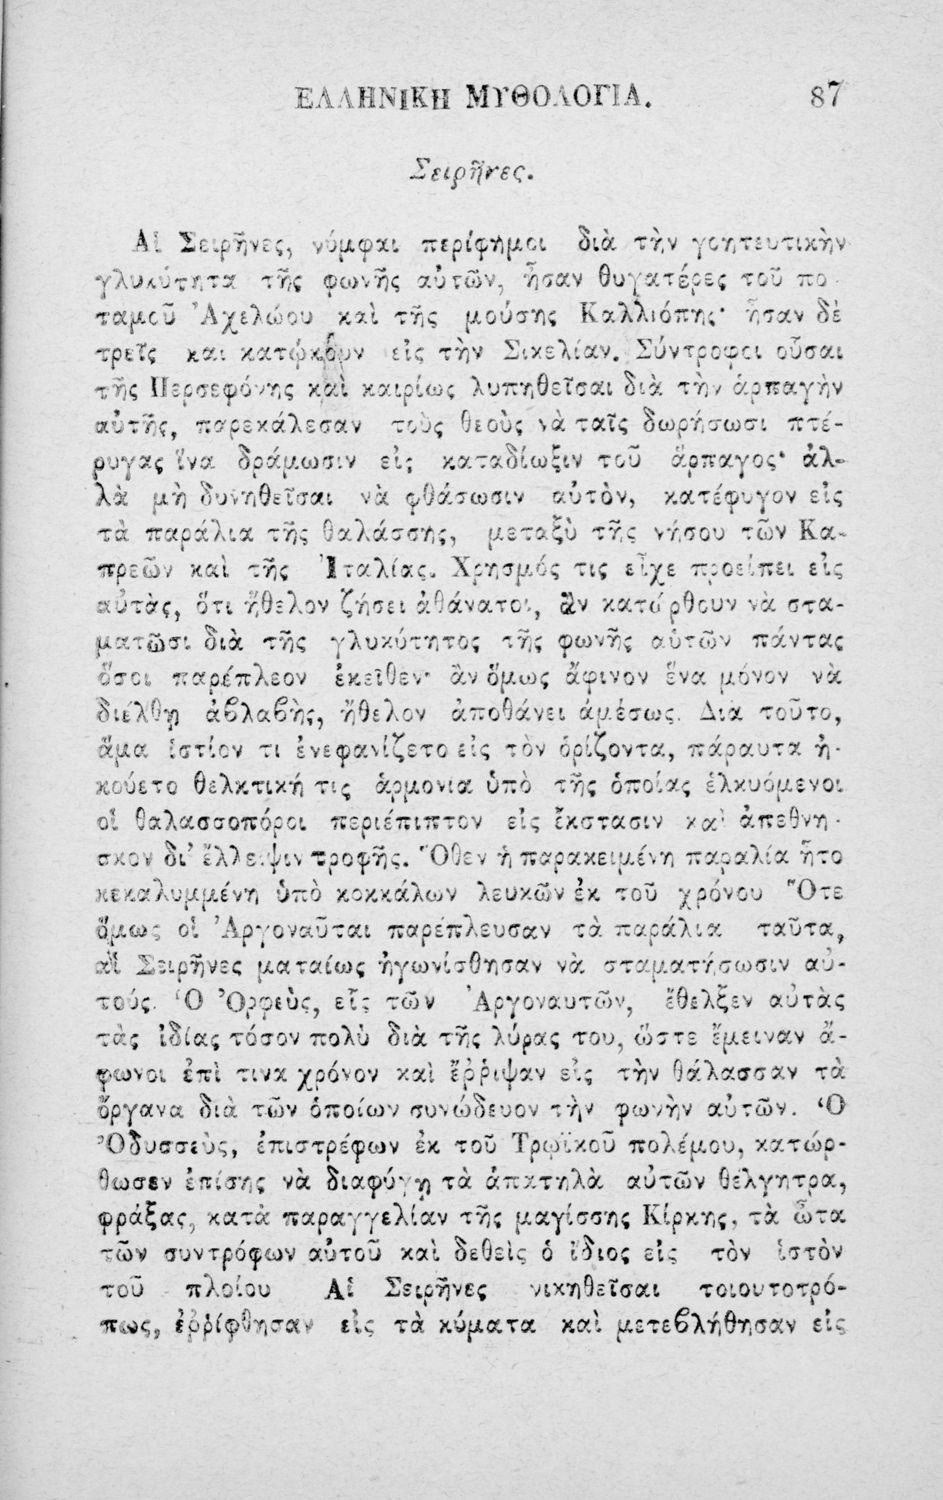 ΕΛΛΗΝΙΚΗ ΜΥΘΟΛΟΓΙΑ. 87
Σειρῆνες.
Αἱ Σειρῆνες, νύμφαι περίφημοι διὰ τὴν γοητευτικὴν
γλυκύτητα τῆς φωνῆς αὐτῶν, ἦσαν θυγατέρες τοῦ πο-
ταμοῦ Ἀχελώου καὶ τῆς μούσης Καλλιόπης· ἦσαν δὲ
τρεῖς και κατῴκουν εἰς τὴν Σικελίαν. Σύντροφοι οὖσαι
τῆς Περσεφόνης καὶ καιρίως λυπηθεῖσαι διὰ τὴν ἁρπαγὴν
αὐτῆς, παρεκάλεσαν τοὺς θεοὺς νὰ ταῖς δωρήσωσι πτέ-
ρυγας ἵνα δράμωσιν εἰς καταδίωξιν τοῦ ἅρπαγος· ἀλ-
λὰ μὴ δυνηθεῖσαι νὰ φθάσωσιν αὐτὸν, κατέφυγον εἰς
τὰ παράλια τῆς θαλάσσης, μεταξὺ τῆς νήσου τῶν Κα-
πρεῶν καὶ τῆς Ἰταλίας. Χρησμός τις εἶχε προείπει εἰς
αὐτὰς, ὅτι ἤθελον ζήσει ἀθάνατοι, ἂν κατώρθουν νὰ στα-
ματῶσι διὰ τῆς γλυκύτητος τῆς φωνῆς αὐτῶν πάντας
ὅσοι παρέπλεον ἐκεῖθεν· ἂν ὅμως ἄφινον ἕνα μόνον νὰ
διέλθῃ ἀβλαβὴς, ἤθελον ἀποθάνει ἀμέσως. Διὰ τοῦτο,
ἅμα ἱστίον τι ἐνεφανίζετο εἰς τὸν ὁρίζοντα, πάραυτα ἠ-
κούετο θελκτική τις ἁρμονία ὑπὸ τῆς ὁποίας ἑλκυόμενοι
οἱ θαλασσοπόροι περιέπιπτον εἰς ἔκστασιν καὶ ἀπεθνη-
σκον δι' ἔλλειψιν τροφῆς. Ὅθεν ἡ παρακειμένη παραλία ἦτο
κεκαλυμμένη ὑπὸ κοκκάλων λευκῶν ἐκ τοῦ χρόνου Ὅτε
ὅμως οἱ Ἀργοναῦται παρέπλευσαν τὰ παράλια ταῦτα,
αἱ Σειρῆνες ματαίως ἠγωνίσθησαν νὰ σταματήσωσιν αὐ-
τούς. Ὁ Ὀρφεὺς, εἷς τῶν Ἀργοναυτῶν, ἔθελξεν αὐτὰς
τὰς ἰδίας τόσον πολὺ διὰ τῆς λύρας του, ὥστε ἔμειναν ἄ-
φωνοι ἐπὶ τινα χρόνον καὶ ἔῤῥιψαν εἰς τὴν θάλασσαν τὰ
ὄργανα διὰ τῶν ὁποίων συνώδευον τὴν φωνὴν αὐτῶν. Ὁ
Ὀδυσσεὺς, ἐπιστρέφων ἐκ τοῦ Τρωϊκοῦ πολέμου, κατώρ-
θωσεν ἐπίσης νὰ διαφύγῃ τὰ ἀπατηλὰ αὐτῶν θέλγητρα,
φράξας, κατὰ παραγγελίαν τῆς μαγίσσης Κίρκης, τὰ ὦτα
τῶν συντρόφων αὐτοῦ καὶ δεθεὶς ὁ ἴδιος εἰς τὸν ἱστὸν
τοῦ πλοίου Αἱ Σειρῆνες νικηθεῖσαι τοιουτοτρό-
πως, ἐῤῥίφθησαν εἰς τὰ κύματα καὶ μετεβλήθησαν εἰς